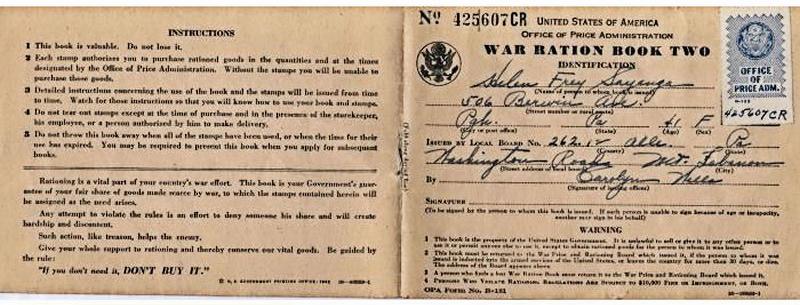 INSTRUCTIONS
1 This book is valuable. Do not lose it.
2 Each stamp authorizes you to purchase rationed goods in the quantities and at the times
designated by the Office of Price Administration. Without the stamps you will be unable to
purchase those goods.
3 Detailed instructions concerning the use of the book and the stamps will be issued from time
to time. Watch for those instructions so that you will know how to use your book and stamps.
4 Do not tear out stamps except at the time of purchase and in the presence of the storekeeper,
his employee, or a person authorized by him to make delivery.
5 Do not throw this book away when all of the stamps have been used, or when the time for their
use has expired. You may be required to present this book when you apply for subsequent
books.
Rationing is a vital part of your country's war effort. This book is your Government's guar-
antee of your fair share of goods made scarce by war, to which the stamps contained herein will
be assigned as the need arises.
Any attempt to violate the rules is an effort to deny someone his share and will create
hardship and discontent.
Such action, like treason, helps the enemy.
Give your whole support to rationing and thereby conserve our vital goods. Be guided by
the rule:
"If you don't need it, DON'T BUY IT."
U. S. GOVERNMENT PRINTING OFFICE: 1942
No 425607CR UNITED STATES OF AMERICA
OFFICE OF PRICE ADMINISTRATION
WAR RATION BOOK TWO
IDENTIFICATION
Helen Frey
(Name of person to whom book is issued)
506 Berwin Ave.
(Street number or rural route)
Pgh. Pa 41 F
(City or post office) (State) (Age) (Sex)
ISSUED BY LOCAL BOARD NO. 262.12 Alle. Pa
(County) (State)
Washington Road Mt. Lebanon
(Street address of local board) (City)
By Carolyn Wells
(Signature of issuing officer)
SIGNATURE
(To be signed by the person to whom this book is issued. If such person is unable to sign because of age or incapacity,
another may sign in his behalf)
WARNING
1 This book is the property of the United States Government. It is unlawful to sell or give it to any other person or to
use it or permit anyone else to use it, except to obtain rationed goods for the person to whom it was issued.
2 This book must be returned to the War Price and Rationing Board which issued it, if the person to whom it was
issued is inducted into the armed services of the United States, or leaves the country for more than 30 days, or dies.
The address of the Board appears above.
3 A person who finds a lost War Ration Book must return it to the War Price and Rationing Board which issued it.
4 PERSONS WHO VIOLATE RATIONING REGULATIONS ARE SUBJECT TO $10,000 FINE OR IMPRISONMENT, OR BOTH.
OPA Form No. R-121
OFFICE
OF
PRICE ADM.
425607CR